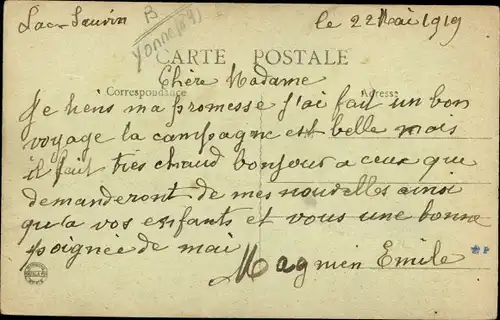 le 22 Mai 1919
B
Yonne (89)
CARTE POSTALE
Chère Madame
Correspondance Adresse
Je tiens ma promesse j'ai fait un bon
voyage la campagne est belle mais
il fait très chaud bonjour a ceux que
demanderont de mes nouvelles ainsi
qu'a vos enfants et vous une bonne
poignée de mai
Magnien Emile